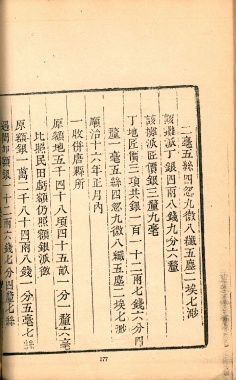 二毫五絲四忽九微八纖五塵二埃七渺
該攤派丁銀四兩八錢九分六釐
該攤派匠價銀三釐九毫
丁地匠價三項共銀一百一十二兩七錢六分
釐一毫五絲四忽九微八纖五塵二埃七渺
順治十六年正月內
一收併唐縣所
原額地五千四十八頃四十五畝一分一釐六毫
比照民田虧額仍照額銀派徵
原額銀一萬二千八十四兩八錢一分五毫七絲
遇閏加額銀一十二兩六錢七分四釐七絲
177